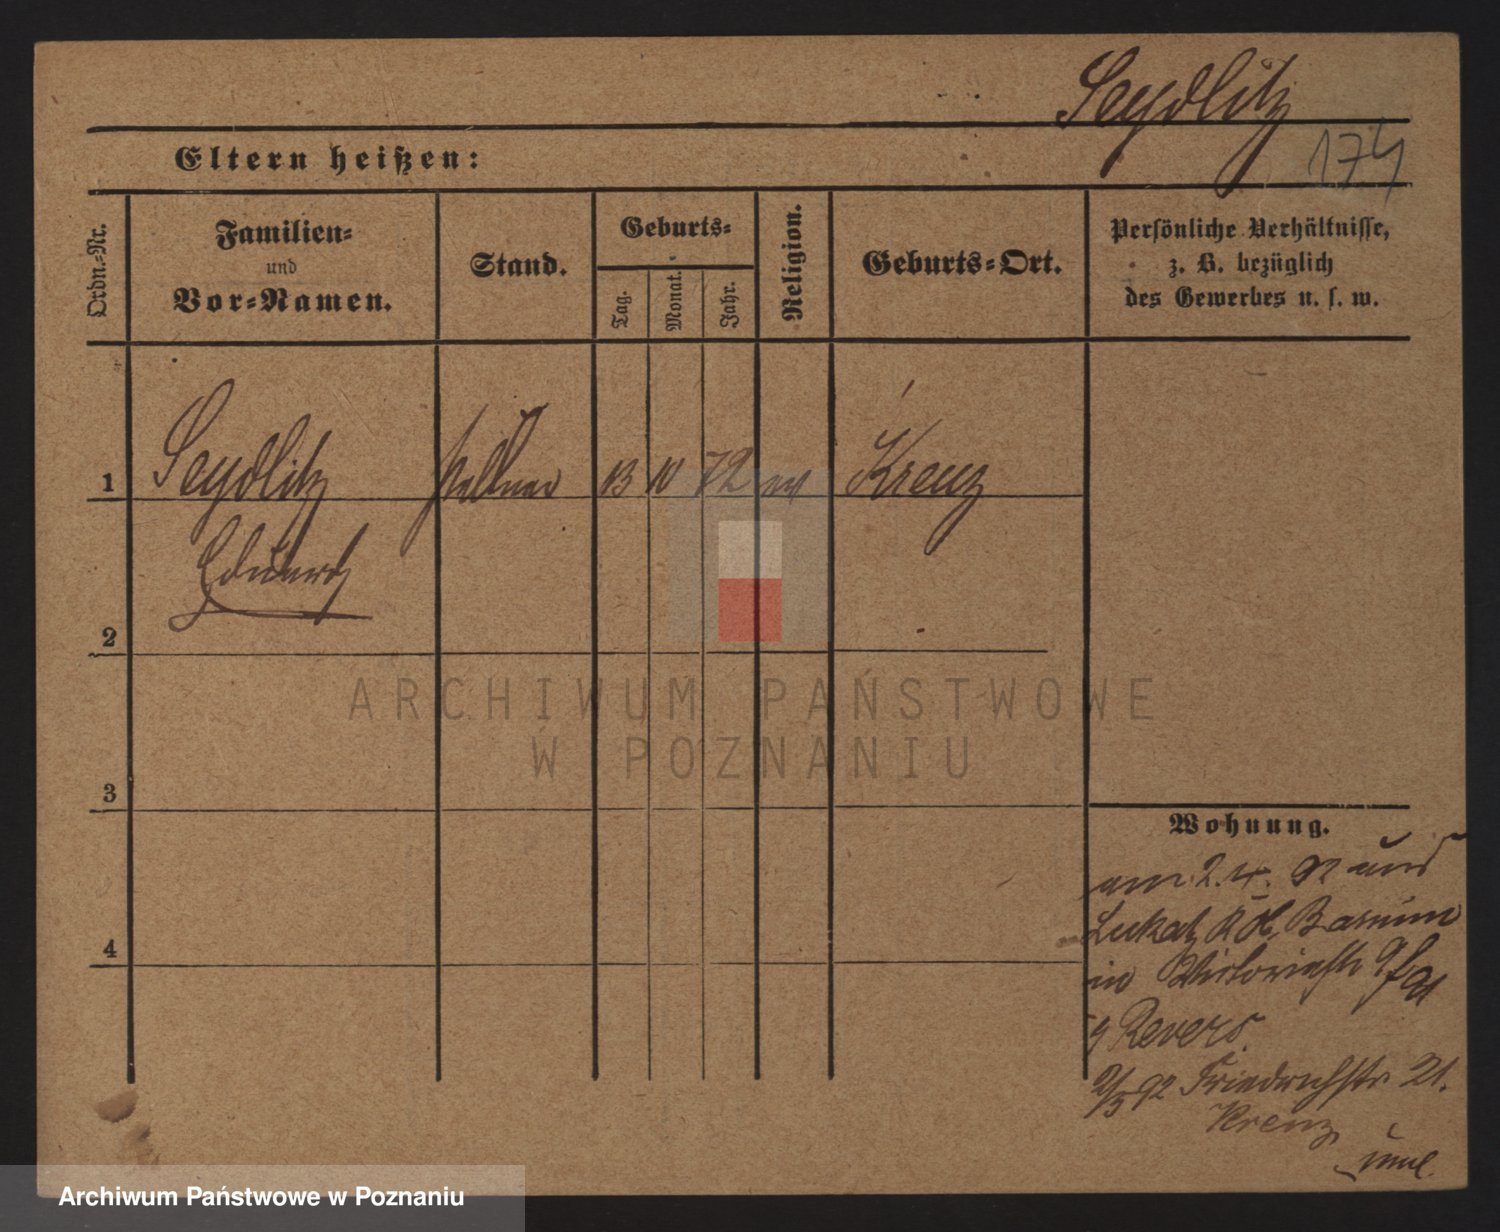 Seydlitz
174
Eltern heißen:
Ordn.-Nr.
Familien-
und
Vor-Namen.
Stand.
Geburts-
Tag.
Monat.
Jahr.
Religion.
Geburts-Ort.
Persönliche Verhältnisse,
z. B. bezüglich
des Gewerbes u. s. w.
1
Seydlitz
Kellner
13
10
72
ev
Kreuz
Eduard
2
ARCHIWUM PAŃSTWOWE
W POZNANIU
3
Wohnung.
am 2. 92
4
in Victoriastr
Revers.
92 Friedrichstr 21.
Kreuz
Archiwum Państwowe w Poznaniu